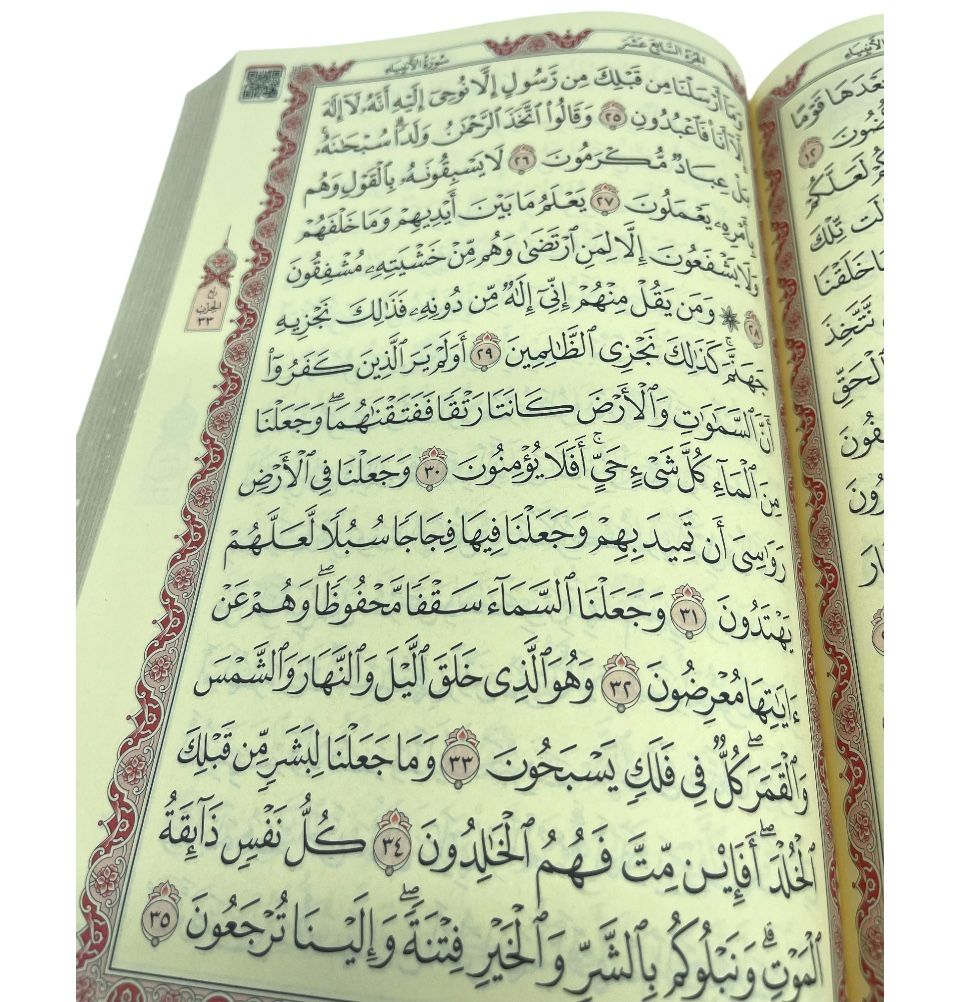 سُورَةُ الأَنبِيَاءِ
الجُزءُ السَّابِعَ عَشَرَ
وَمَآ أَرْسَلْنَا مِن قَبْلِكَ مِن رَّسُولٍ إِلَّا نُوحِىٓ إِلَيْهِ أَنَّهُۥ لَآ إِلَٰهَ
إِلَّآ أَنَا۠ فَٱعْبُدُونِ ٢٥ وَقَالُوا۟ ٱتَّخَذَ ٱلرَّحْمَٰنُ وَلَدًا ۗ سُبْحَٰنَهُۥ ۚ
بَلْ عِبَادٌ مُّكْرَمُونَ ٢٦ لَا يَسْبِقُونَهُۥ بِٱلْقَوْلِ وَهُم
بِأَمْرِهِۦ يَعْمَلُونَ ٢٧ يَعْلَمُ مَا بَيْنَ أَيْدِيهِمْ وَمَا خَلْفَهُمْ
وَلَا يَشْفَعُونَ إِلَّا لِمَنِ ٱرْتَضَىٰ وَهُم مِّنْ خَشْيَتِهِۦ مُشْفِقُونَ
٢٨ ۞ وَمَن يَقُلْ مِنْهُمْ إِنِّىٓ إِلَٰهٌ مِّن دُونِهِۦ فَذَٰلِكَ نَجْزِيهِ
جَهَنَّمَ ۚ كَذَٰلِكَ نَجْزِى ٱلظَّٰلِمِينَ ٢٩ أَوَلَمْ يَرَ ٱلَّذِينَ كَفَرُوٓا۟
أَنَّ ٱلسَّمَٰوَٰتِ وَٱلْأَرْضَ كَانَتَا رَتْقًا فَفَتَقْنَٰهُمَا ۖ وَجَعَلْنَا
مِنَ ٱلْمَآءِ كُلَّ شَىْءٍ حَىٍّ ۖ أَفَلَا يُؤْمِنُونَ ٣٠ وَجَعَلْنَا فِى ٱلْأَرْضِ
رَوَٰسِىَ أَن تَمِيدَ بِهِمْ وَجَعَلْنَا فِيهَا فِجَاجًا سُبُلًا لَّعَلَّهُمْ
يَهْتَدُونَ ٣١ وَجَعَلْنَا ٱلسَّمَآءَ سَقْفًا مَّحْفُوظًا ۖ وَهُمْ عَنْ
ءَايَٰتِهَا مُعْرِضُونَ ٣٢ وَهُوَ ٱلَّذِى خَلَقَ ٱلَّيْلَ وَٱلنَّهَارَ وَٱلشَّمْسَ
وَٱلْقَمَرَ ۖ كُلٌّ فِى فَلَكٍ يَسْبَحُونَ ٣٣ وَمَا جَعَلْنَا لِبَشَرٍ مِّن قَبْلِكَ
ٱلْخُلْدَ ۖ أَفَإِي۟ن مِّتَّ فَهُمُ ٱلْخَٰلِدُونَ ٣٤ كُلُّ نَفْسٍ ذَآئِقَةُ
ٱلْمَوْتِ ۗ وَنَبْلُوكُم بِٱلشَّرِّ وَٱلْخَيْرِ فِتْنَةً ۖ وَإِلَيْنَا تُرْجَعُونَ ٣٥
الحِزْب
٣٣
قَوْمًا
١٢
لَعَلَّكُمْ
تِّلْكَ
خَلَقْنَا
نَّتَّخِذَ
ٱلْحَقِّ